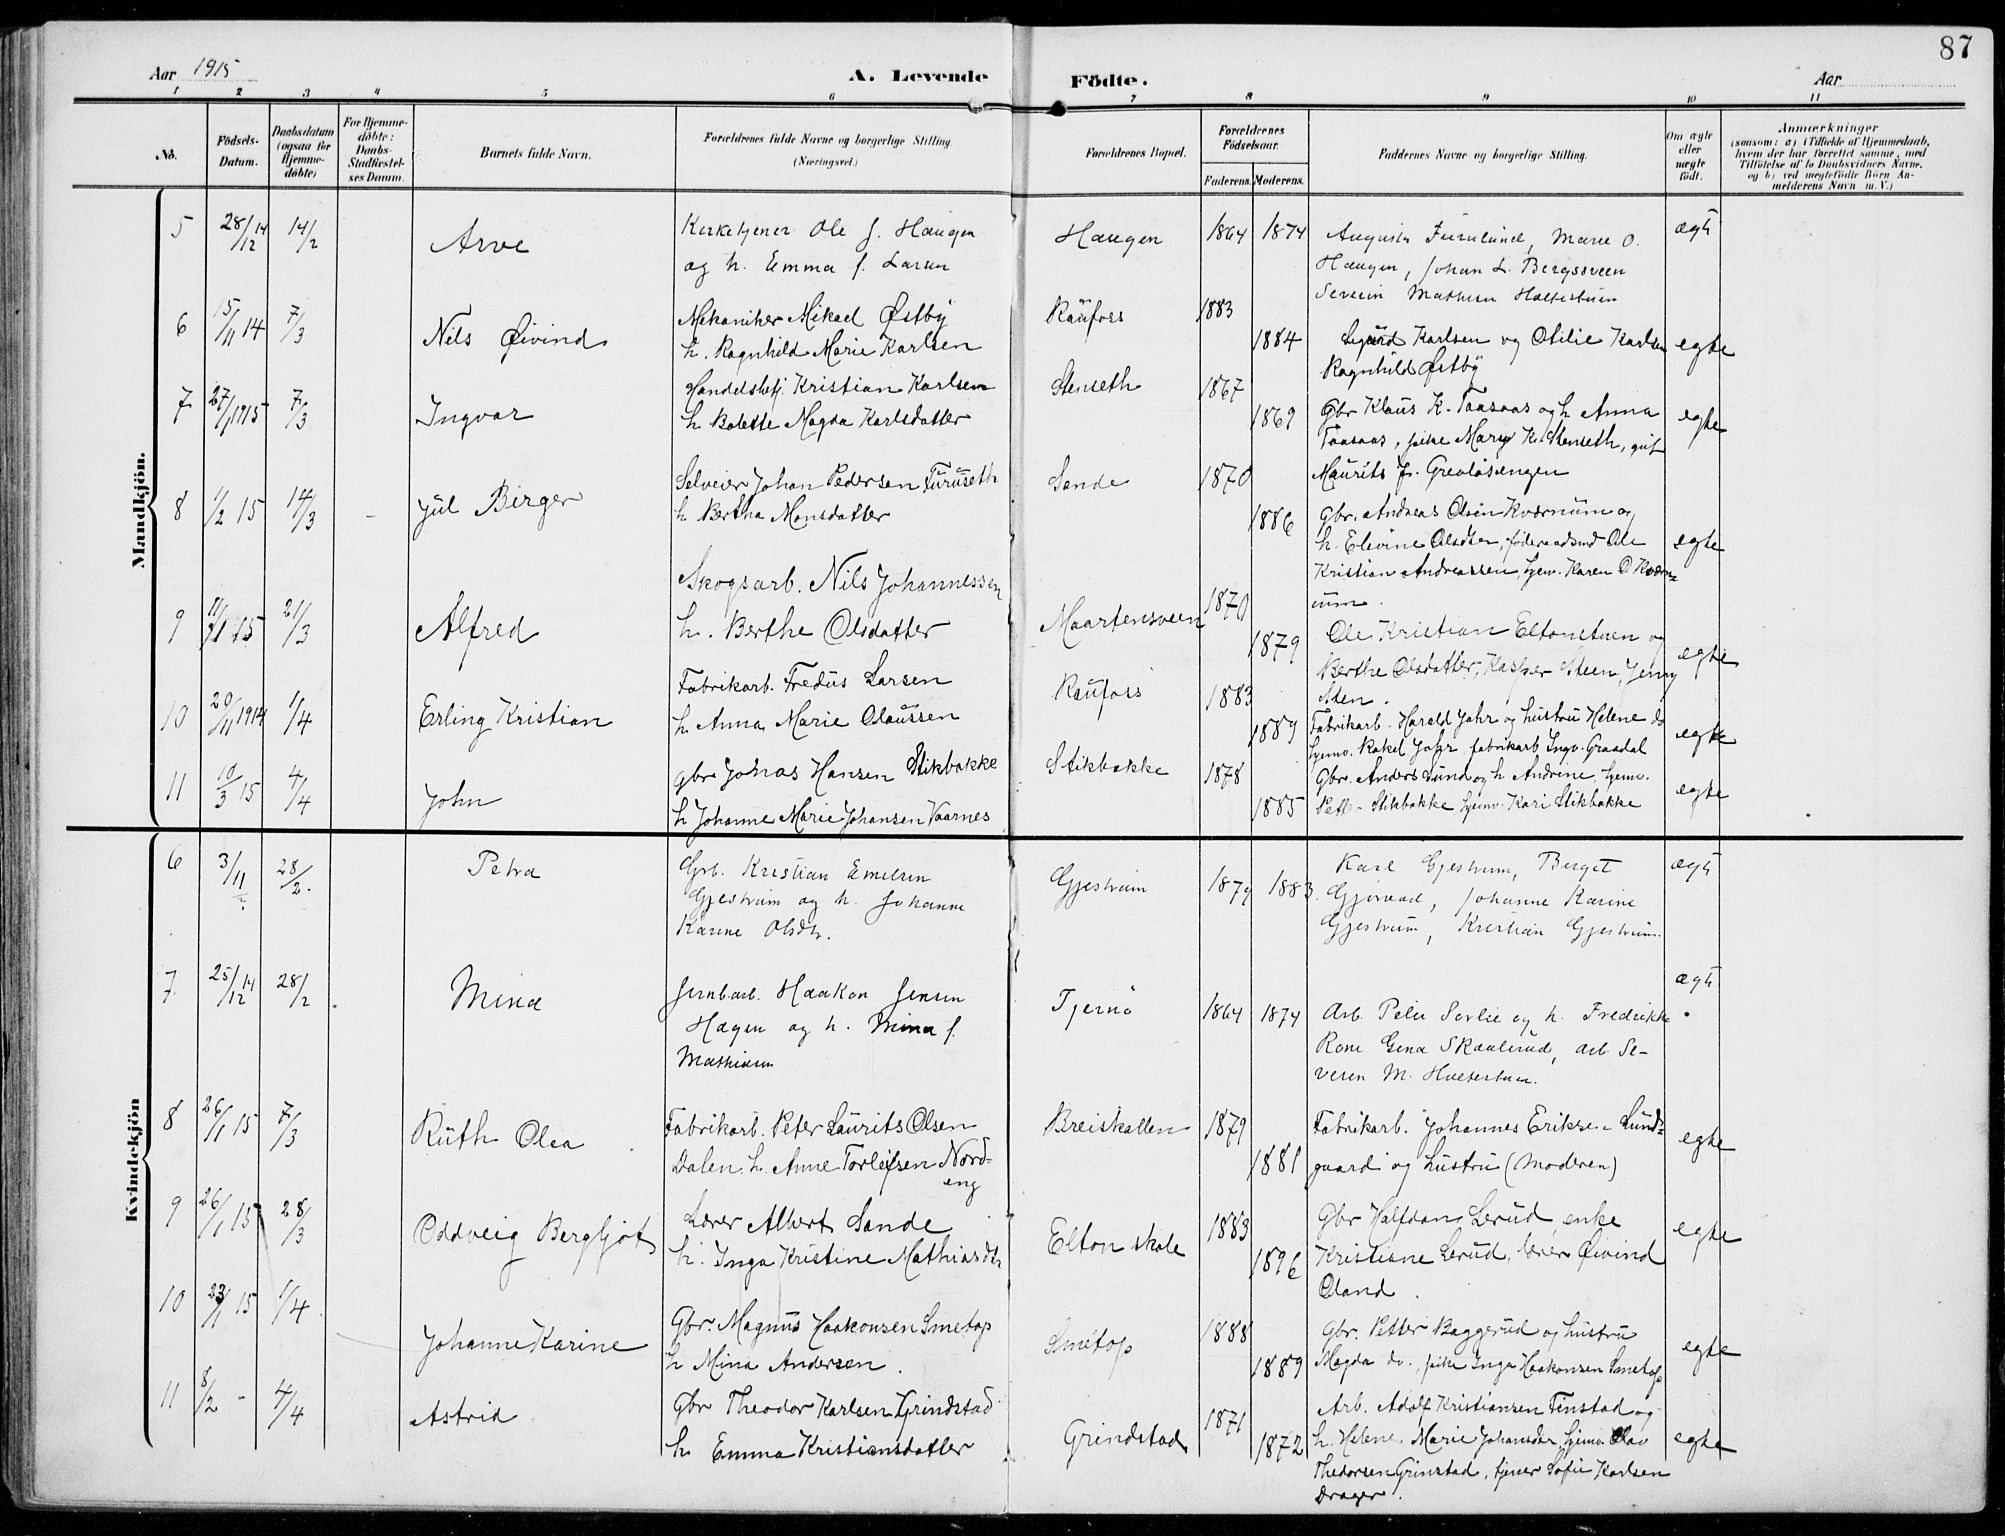 87
Aar 1915
A. Levende Födte.
Aar
1 2 3 4 5 6 7 8 9 10 11
No.
Födsels-
Datum.
Daabsdatum
(ogsaa for
Hjemme-
döbte)
For Hjemme-
döbte:
Daabs-
Stadfæstel-
ses Datum.
Barnets fulde Navn.
Forældrenes fulde Navne og borgerlige Stilling.
(Næringsvei.)
Forældrenes Bopæl.
Forældrenes
Födselsaar.
Faderens. Moderens.
Faddernes Navne og borgerlige Stilling.
Om ægte
eller
uægte
født.
Anmærkninger
(saasom: a) i Tilfælde af Hjemmedaab,
hvem der har forrettet samme, med
Tilföielse af to Daabsvidners Navne,
og b) ved uægtefödte Börn An-
melderens Navn m. V.)
Mandkjön.
5 28/12 14 14/2 Arve
Kirketjener Ole J. Haugen
og h. Emma f. Larsen
Haugen 1864 1874
Marie O.
Haugen, Johan L. Bergssveen
Severin
ægte
6 15/11 14 7/3 Nils Øivind
Mekaniker Mikael Østby
h. Ragnhild Marie Karlsen
Raufoss 1883 1884
Sigurd Karlsen og Otilie Karlsen
Ragnhild Østby
egte
7 27/1 1915 7/3 Ingvar
Handelsbetj. Kristian Karlsen
h. Bolette Magda Karlsdatter
Stenseth 1867 1869
Gbr Klaus K. Taasaas og h. Anna
Taasaas, pike Mary K. Stenseth, gut
Maurits Fr. Grevlösengen
egte
8 1/2 15 14/3 - Jul Birger
Selveier Johan Pedersen Furuseth
h Bertha Monsdatter
Sande 1870 1886
Gbr. Andreas Olsen Kværnum og
h. Elevine Olsdtter, föderaadsmd Ole
Kristian Andreassen, hjemv. Karen O Kværn-
um.
egte
9 11/1 15 21/3 Alfred
Skogsarb. Nils Johannessen
h. Berthe Olsdatter
Maartensveen 1870 1879
Ole Kristian Eltonstuen og
Berthe Olsdatter, Kasper Steen, Jenny
Sten.
egte
10 20/11 1914 1/4 Erling Kristian
Fabrikarb. Fredus Larsen
h. Anna Marie Claussen
Raufoss 1883 1889
Fabrikarb. Harald Jahr og hustru Helene do
hjemv. Rakel Jahr, fabrikarb Ingv. Graadal
egte
11 10/3 15 4/4 John
gbr Johas Hansen Stikbakke
h Johanne Marie Johansen Vaarnes
Stikbakke 1878 1885
Gbr. Anders Lund og h Andrine, hjemv.
Stikbakke hjemv. Kari Stikbakke
egte
Kvindekjön
6 3/11 28/2. Petra
Grb. Kristian Emilsen
Gjestrum og h. Johanne
Karine Olsdtr.
Gjestrum 1879 1883.
Karl Gjestrum, Berget
Johanne Karine
Gjestrum, Kristian Gjestrum.
ægte
7. 25/12 14 28/2. Mina
Jernbarb. Haakon Jensen
Hagen og h. Mina f.
Mathisen
Tjernö 1864 1874
Arb. Peder Sørlie og h. Fredrikke
Gina Skaalerud, arb. Se-
veren M.
ægte
8 26/1 15 7/3 Ruth Olea
Fabrikarb. Peter Laurits Olsen
Dalen, h. Anne Torleifsen Nord-
eng
Breiskallen 1879 1881
Fabrikarb. Johannes Eriksen Lund-
gaard og hustru (Moderen)
egte
9 26/1 15 28/3 Oddveig Bergljot
Lærer Albert Sande
h. Inga Kristine Mathiasdtr
Elton skole 1883 1896
Gbr Halfdan Lerud, enke
Kristiane Lerud, lærer Øivind
Oland.
egte
10 23/1 15 1/4 Johanne Karine
Gbr. Magnus Haakonsen Smetop
h Mina Andersen.
Smetop 1888 1889
Gbr. Petter Baggerud og hustru
Magda do., pike Inga Haakonsen Smetop
egte
11 8/2 - 4/4 Astrid
Gbr Theodor Karlsen Grindstad
h. Emma Kristiansdatter
Grindstad 1871 1872
Arb. Adolf Kristiansen Finstad og
h. Helene Marie Johansdtr, hjemv. Olav
Thedorsen Grinstad, tjener Sofie Karlsen
Drager.
egte